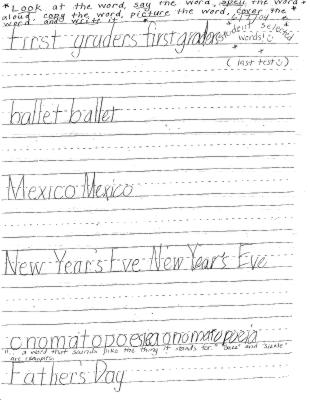 *Look at the word, say the word, spell the word
aloud, copy the word, picture the word, cover the *
word and write it. *
6/7/04
student selected
words! ☺
first graders first graders
(last test ☺)
ballet ballet
Mexico Mexico
New Year's Eve New Year's Eve
onomatopoeia onomatopoeia
a word that sounds like the thing it stands for "buzz" and "sizzle"
are examples.
Father's Day